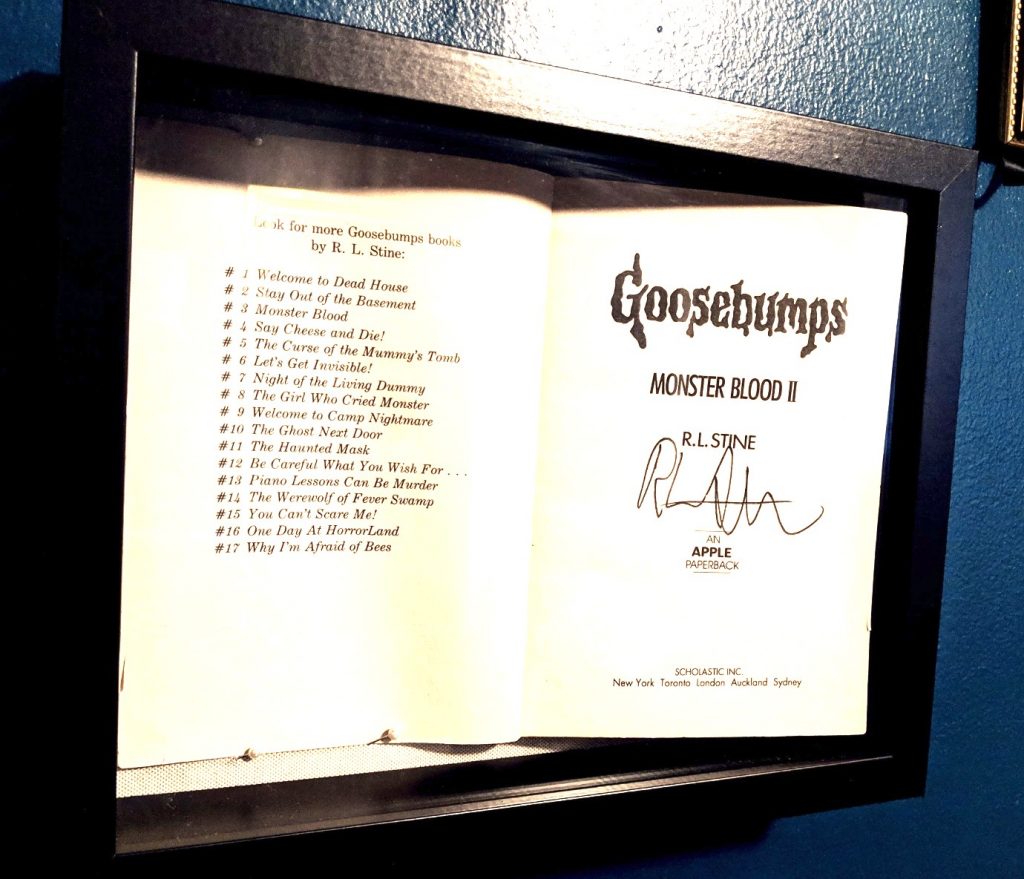 Look for more Goosebumps books
by R. L. Stine:
# 1 Welcome to Dead House
# 2 Stay Out of the Basement
# 3 Monster Blood
# 4 Say Cheese and Die!
# 5 The Curse of the Mummy's Tomb
# 6 Let's Get Invisible!
# 7 Night of the Living Dummy
# 8 The Girl Who Cried Monster
# 9 Welcome to Camp Nightmare
#10 The Ghost Next Door
#11 The Haunted Mask
#12 Be Careful What You Wish For . . .
#13 Piano Lessons Can Be Murder
#14 The Werewolf of Fever Swamp
#15 You Can't Scare Me!
#16 One Day At HorrorLand
#17 Why I'm Afraid of Bees
Goosebumps
MONSTER BLOOD II
R.L. STINE
RL Stine
AN
APPLE
PAPERBACK
SCHOLASTIC INC.
New York Toronto London Auckland Sydney